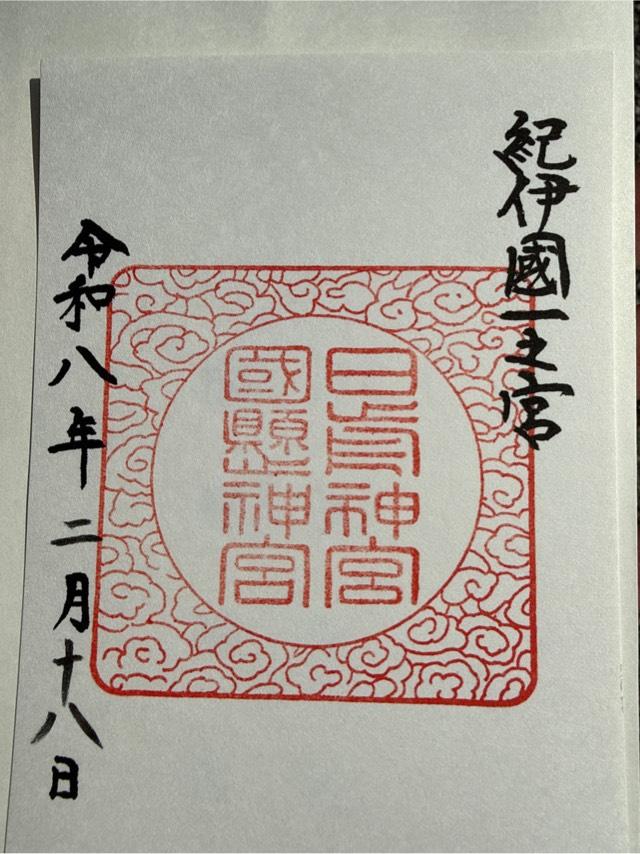 紀伊國一之宮
日前神宮
國懸神宮
令和八年二月十八日